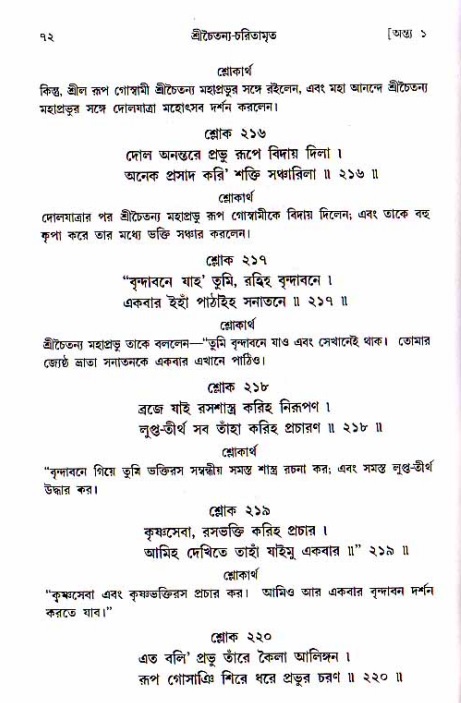 ৭২ শ্রীচৈতন্য-চরিতামৃত [অন্ত্য ১
শ্লোকার্থ
কিন্তু, শ্রীল রূপ গোস্বামী শ্রীচৈতন্য মহাপ্রভুর সঙ্গে রইলেন, এবং মহা আনন্দে শ্রীচৈতন্য
মহাপ্রভুর সঙ্গে দোলযাত্রা মহোৎসব দর্শন করলেন।
শ্লোক ২১৬
দোল অনন্তরে প্রভু রূপে বিদায় দিলা ।
অনেক প্রসাদ করি' শক্তি সঞ্চারিলা ॥ ২১৬ ॥
শ্লোকার্থ
দোলযাত্রার পর শ্রীচৈতন্য মহাপ্রভু রূপ গোস্বামীকে বিদায় দিলেন; এবং তাকে বহু
কৃপা করে তার মধ্যে ভক্তি সঞ্চার করলেন।
শ্লোক ২১৭
“বৃন্দাবনে যাহ' তুমি, রহিহ বৃন্দাবনে ।
একবার ইহাঁ পাঠাইহ সনাতনে ॥ ২১৭ ॥
শ্লোকার্থ
শ্রীচৈতন্য মহাপ্রভু তাকে বললেন—“তুমি বৃন্দাবনে যাও এবং সেখানেই থাক। তোমার
জ্যেষ্ঠ ভ্রাতা সনাতনকে একবার এখানে পাঠিও।
শ্লোক ২১৮
ব্রজে যাই রসশাস্ত্র করিহ নিরূপণ ।
লুপ্ত-তীর্থ সব তাঁহা করিহ প্রচারণ ॥ ২১৮ ॥
শ্লোকার্থ
“বৃন্দাবনে গিয়ে তুমি ভক্তিরস সম্বন্ধীয় সমস্ত শাস্ত্র রচনা কর; এবং সমস্ত লুপ্ত-তীর্থ
উদ্ধার কর।
শ্লোক ২১৯
কৃষ্ণসেবা, রসভক্তি করিহ প্রচার ।
আমিহ দেখিতে তাহাঁ যাইমু একবার ॥” ২১৯ ॥
শ্লোকার্থ
“কৃষ্ণসেবা এবং কৃষ্ণভক্তিরস প্রচার কর। আমিও আর একবার বৃন্দাবন দর্শন
করতে যাব।”
শ্লোক ২২০
এত বলি' প্রভু তাঁরে কৈলা আলিঙ্গন ।
রূপ গোসাঞি শিরে ধরে প্রভুর চরণ ॥ ২২০ ॥